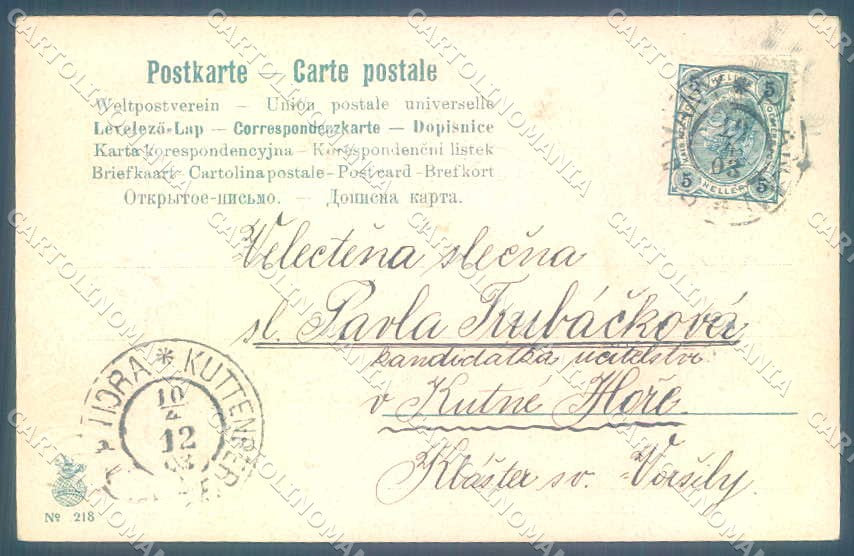 Postkarte — Carte postale
Weltpostverein — Union postale universelle
Levelező-Lap — Correspondenzkarte — Dopisnice
Karta korespondencyjna — Korespondenčni listek
Briefkaart - Cartolina postale - Post card - Brefkort
Открытое-письмо. — Дописна карта.
5 HELLER 5
5 HELLER 5
03
Velectěna slečna
sl. Pavla Trubáčková
kandidatka učitelství
v Kutné Hoře.
Klášter sv. Voršily.
HORA * KUTTENBERG
10/4
12
№ 218
CARTOLINOMANIA